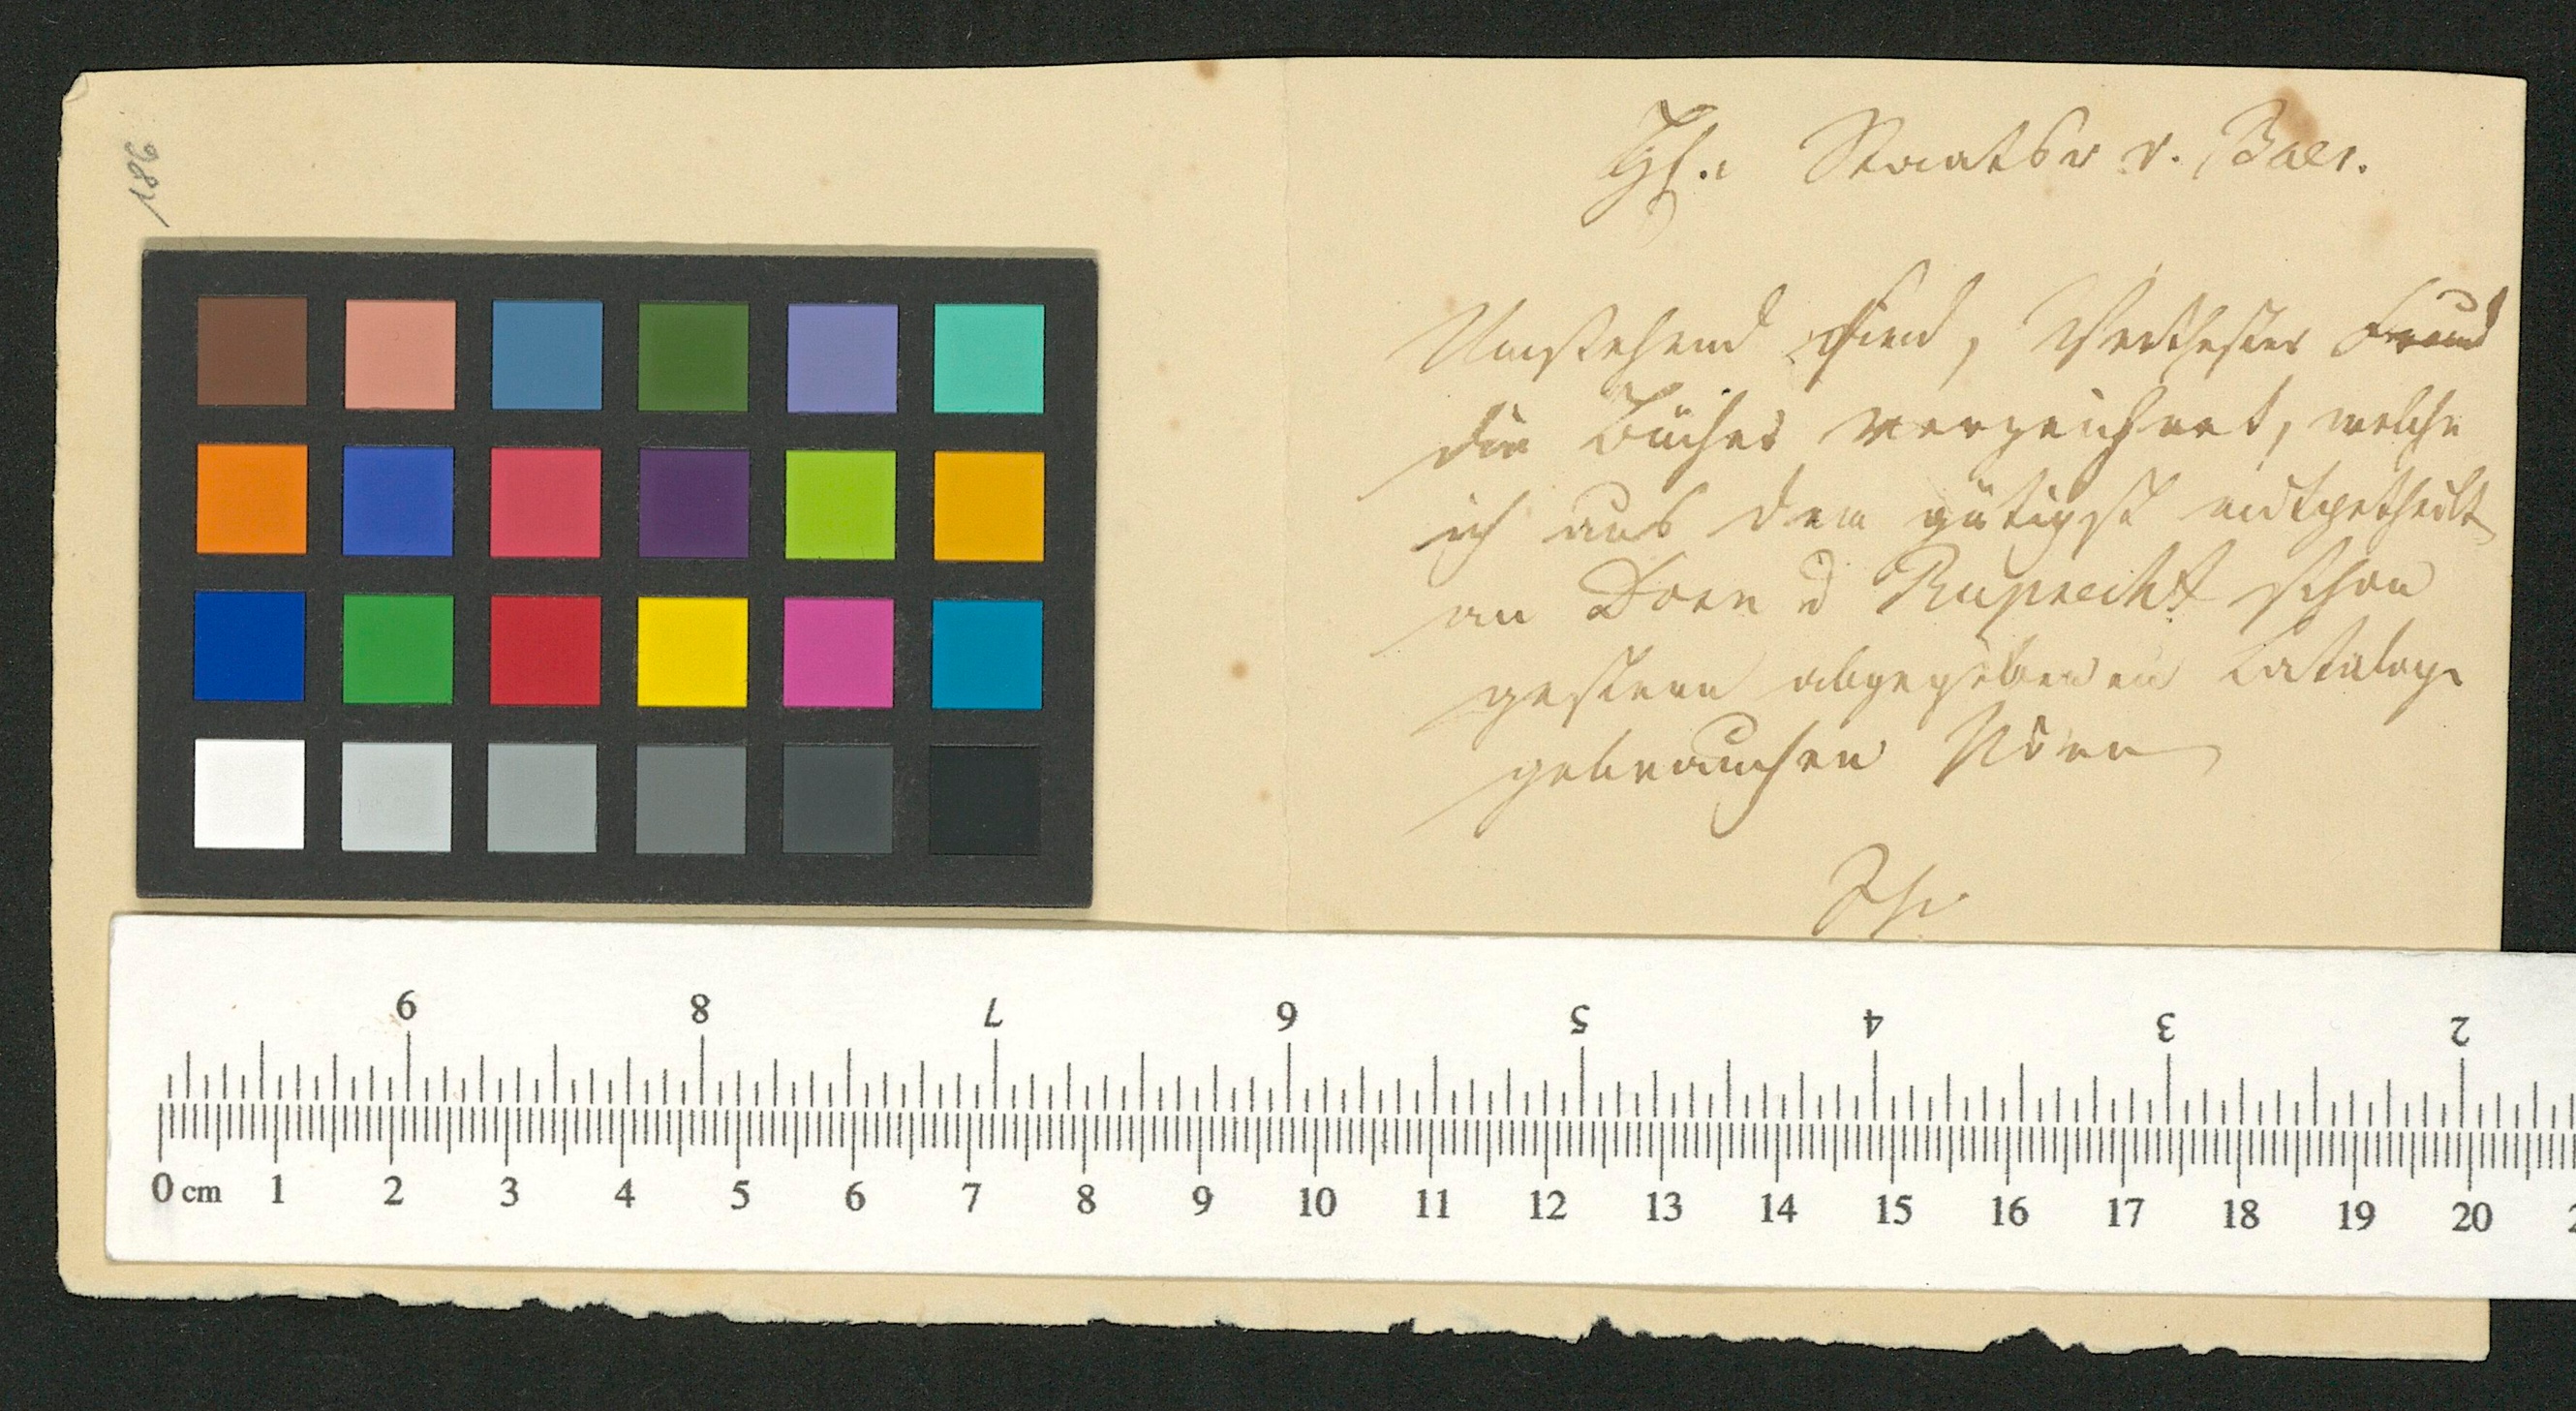 186
Hr. Staatsr v. Baer.
Umstehend sind, Verehrtester Freund
die Bücher verzeichnet, welche
ich aus dem gütigst mitgetheilt
an Dorn d Ruprecht schon
gestern abgegebenen Cataloge
gebrauchen
9 8 7 6 5 4 3 2
0 cm 1 2 3 4 5 6 7 8 9 10 11 12 13 14 15 16 17 18 19 20